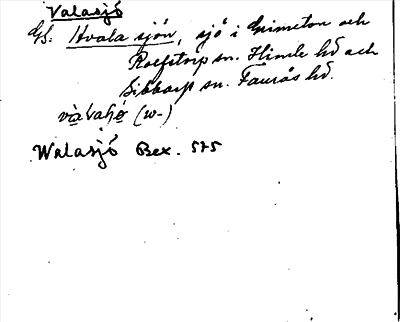 Valasjö
GS: Hvala sjön, sjö i Grimeton och
Rolfstorp sn. Himle hd och
Sibbarp sn. Faurås hd.
(w-)
Walasjö Bex. 575